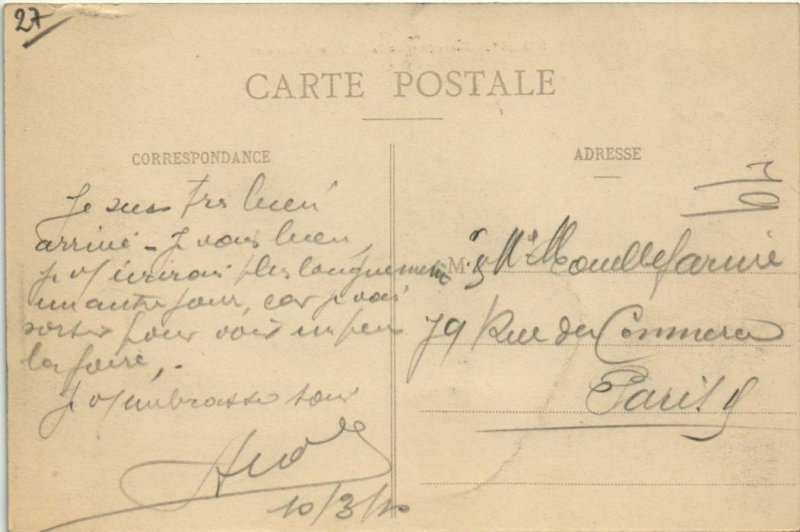 27
CARTE POSTALE
CORRESPONDANCE
Je suis très bien
arrivé - Je vais bien,
je t'écrirai plus longuement
un autre jour, car je vais
sortir pour voir un peu
la foire.
Je t'embrasse
10/3/10
ADRESSE
M.
79 Rue du Commerce
Paris